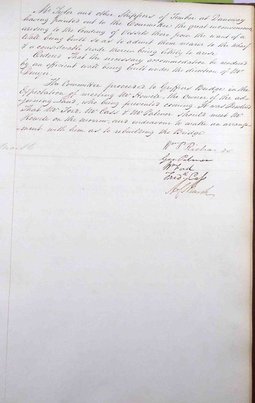 Mr. Tyler and other Shippers of Timber at Dunaway
having pointed out to the Committee the great inconvenience
arising to the loading of Vessels there from the want of a
Wall being built so as to admit them nearer to the Wharf
& a considerable trade therein being likely to arise
Ordered That the necessary accommodation be rendered
by an efficient wall being built under the direction of Mr.
The Committee proceeded to Griffins Bridge in the
expectation of meeting Mr. Howells the Owner of the ad-
joining Land, who being prevented coming, It was Resolved
That Mr. Ford, Mr. Cass & Mr. Palmer should meet Mr.
Howells on the morrow, and endeavour to make an arrange-
ment with him as to rebuilding the Bridge
Wm. S.
Geo. Palmer
Wm. Ford
Fred. Cass